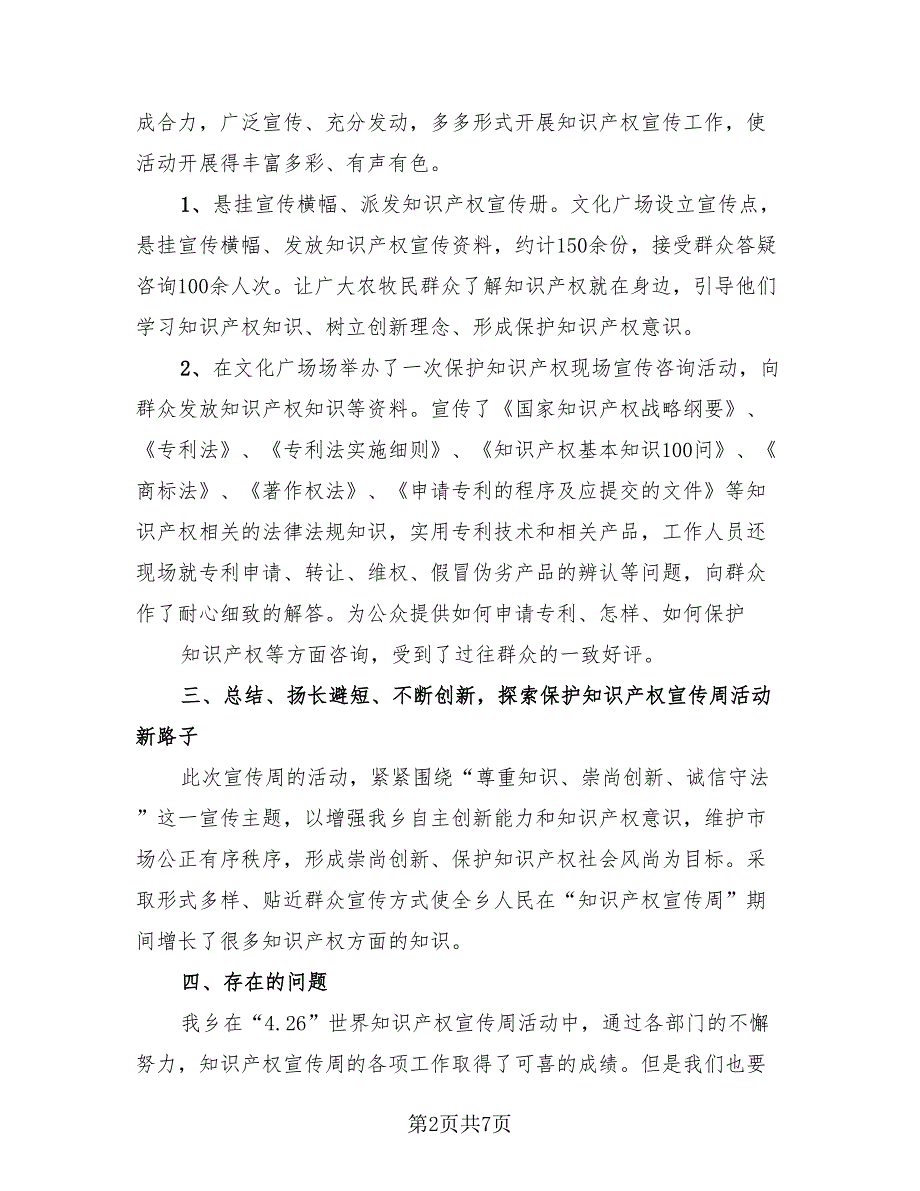 成合力，广泛宣传、充分发动，多多形式开展知识产权宣传工作，使
活动开展得丰富多彩、有声有色。
1、悬挂宣传横幅、派发知识产权宣传册。文化广场设立宣传点，
悬挂宣传横幅、发放知识产权宣传资料，约计150余份，接受群众答疑
咨询100余人次。让广大农牧民群众了解知识产权就在身边，引导他们
学习知识产权知识、树立创新理念、形成保护知识产权意识。
2、在文化广场场举办了一次保护知识产权现场宣传咨询活动，向
群众发放知识产权知识等资料。宣传了《国家知识产权战略纲要》、
《专利法》、《专利法实施细则》、《知识产权基本知识100问》、《
商标法》、《著作权法》、《申请专利的程序及应提交的文件》等知
识产权相关的法律法规知识，实用专利技术和相关产品，工作人员还
现场就专利申请、转让、维权、假冒伪劣产品的辨认等问题，向群众
作了耐心细致的解答。为公众提供如何申请专利、怎样、如何保护
知识产权等方面咨询，受到了过往群众的一致好评。
三、总结、扬长避短、不断创新，探索保护知识产权宣传周活动
新路子
此次宣传周的活动，紧紧围绕“尊重知识、崇尚创新、诚信守法
”这一宣传主题，以增强我乡自主创新能力和知识产权意识，维护市
场公正有序秩序，形成崇尚创新、保护知识产权社会风尚为目标。采
取形式多样、贴近群众宣传方式使全乡人民在“知识产权宣传周”期
间增长了很多知识产权方面的知识。
四、存在的问题
我乡在“4.26”世界知识产权宣传周活动中，通过各部门的不懈
努力，知识产权宣传周的各项工作取得了可喜的成绩。但是我们也要
第2页共7页